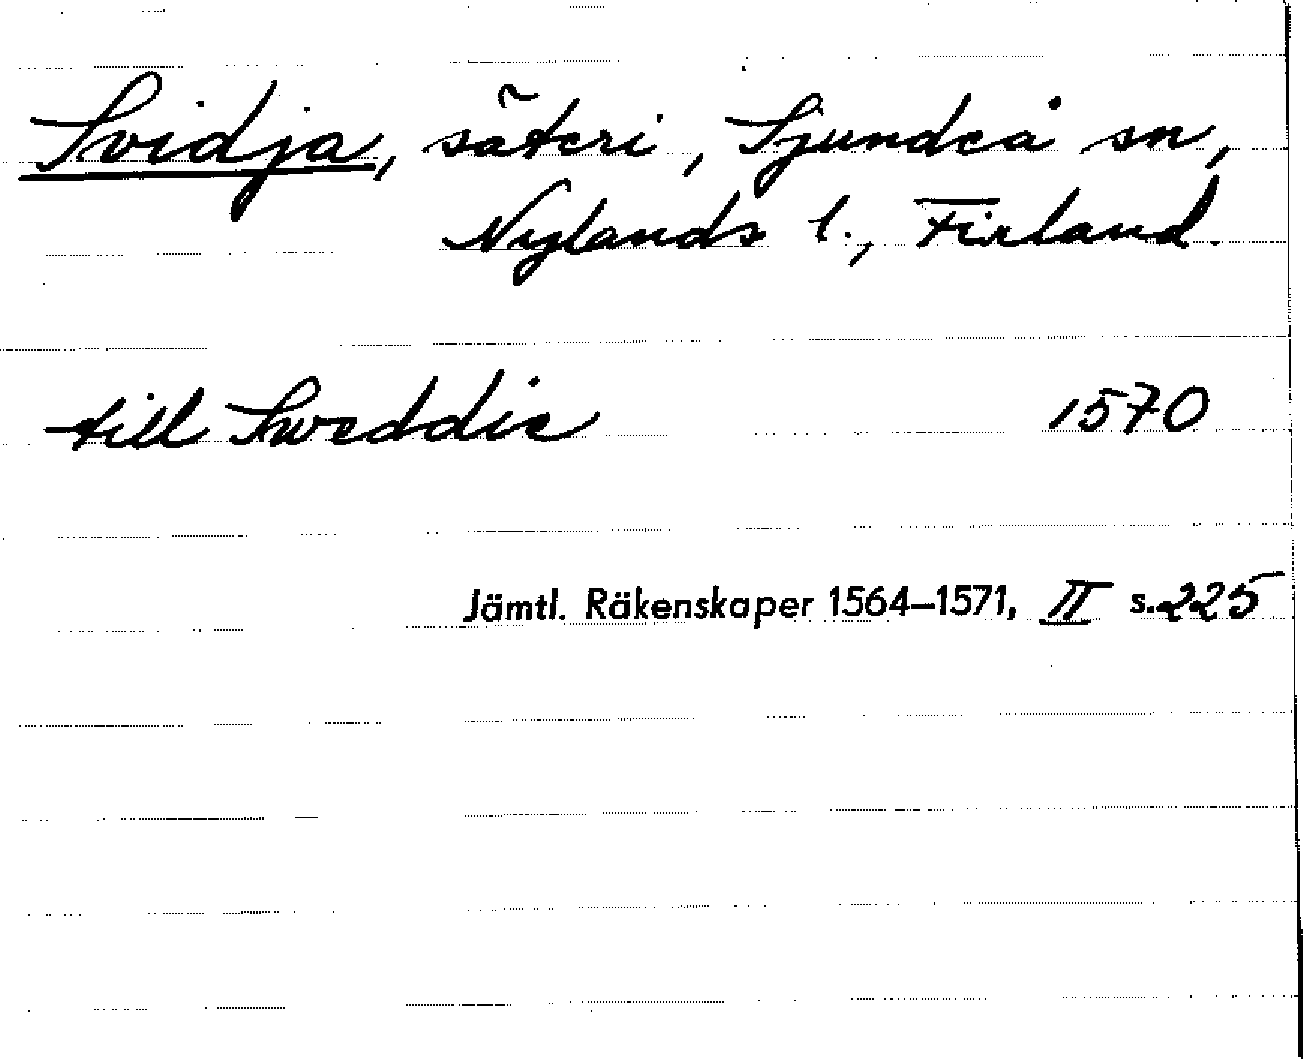 Svidja, säteri, Sjundeå sn,
Nylands l., Finland.
till Sweddie 1570
Jämtl. Räkenskaper 1564–1571, II s. 225